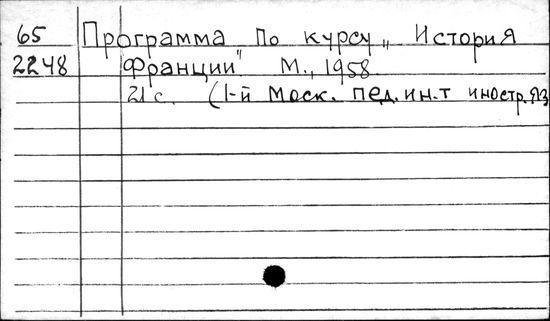 65 Программа по курсу „История
2248 Франции" М., 1958.
21 с. (1-й Моск. пед. ин-т иностр. яз